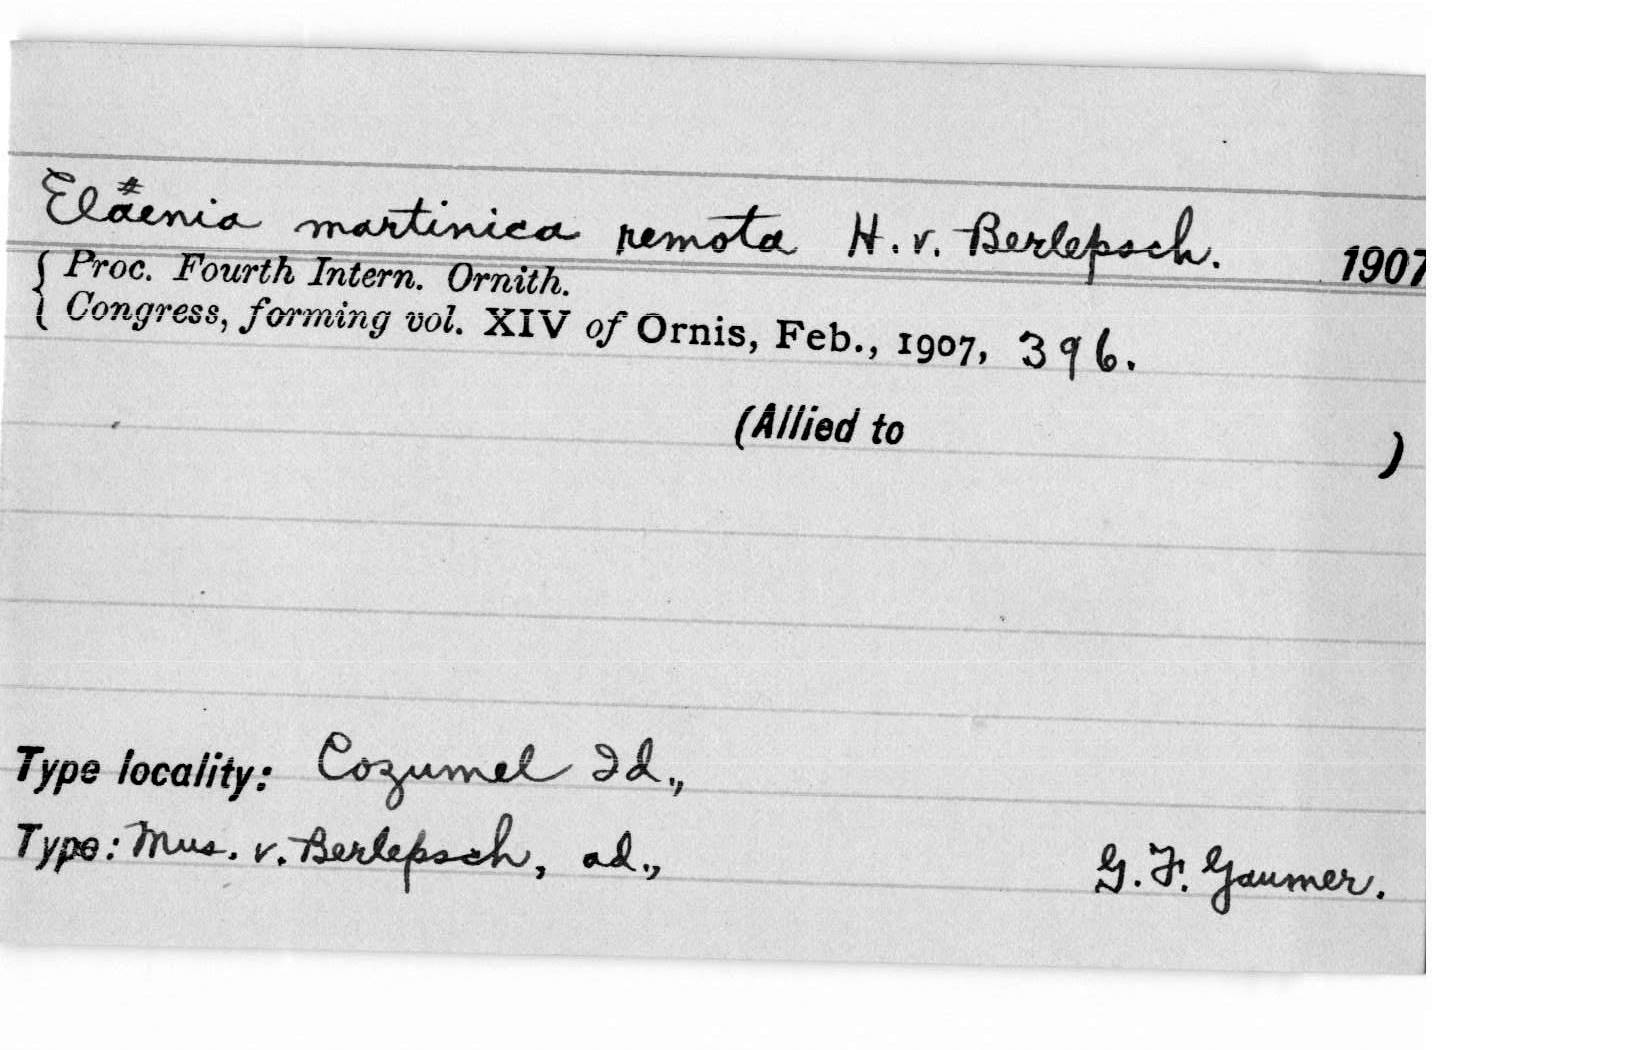 Elaenia martinica remota H. v. Berlepsch. 1907
{ Proc. Fourth Intern. Ornith.
Congress, forming vol. XIV of Ornis, Feb., 1907, 396.
(Allied to )
Type locality: Cozumel Id.,
Type: Mus. v. Berlepsch, ad., G. F. Gaumer.